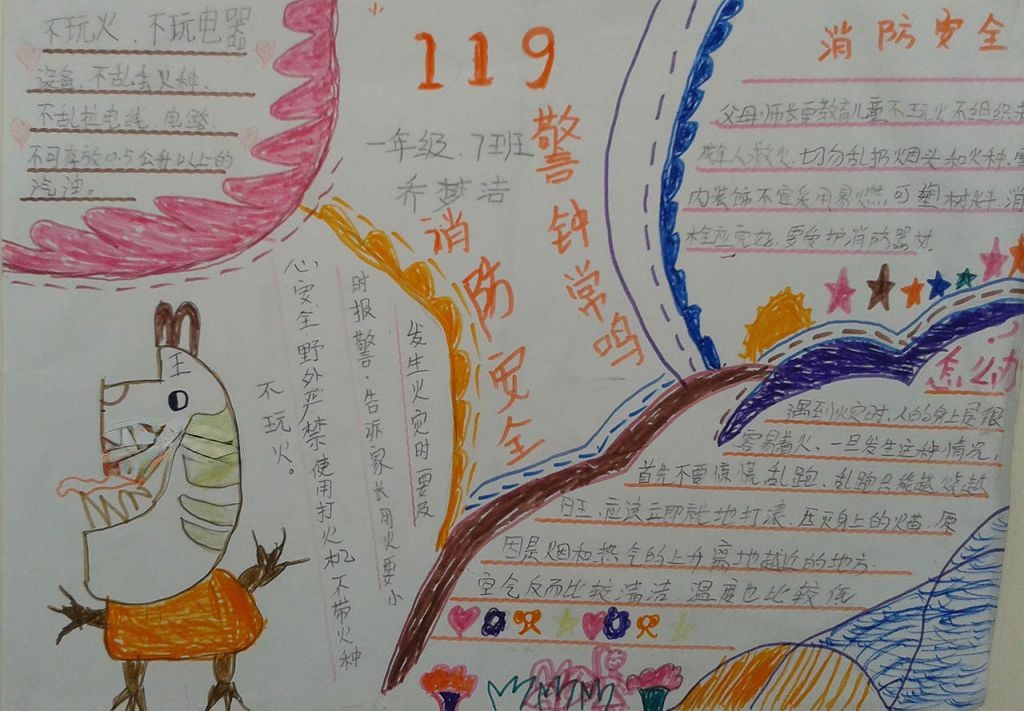 不玩火、不玩电器
设备、不乱丢火种、
不乱拉电线、电器、
不可存放0.5公升以上的
汽油。
119
警钟常鸣
一年级、7班
乔梦洁
消防安全
消防安全
父母、师长要教育儿童不玩火不组织未
成年人救火、切勿乱扔烟头和火种、室
内装饰不宜采用易燃、可塑材料、消
栓应完好、要爱护消防器材。
发生火灾时要及
时报警、告诉家长用火要小
心安全野外严禁使用打火机不带火种
不玩火。
怎么办
遇到火灾时、人的身上是很
容易着火、一旦发生这种情况,
首先不要惊慌乱跑、乱跑只能越烧越
旺、应该立即就地打滚、压灭身上的火苗、原
因是烟和热气的上升离地越近的地方、
空气反而比较清洁 温度也比较低
王